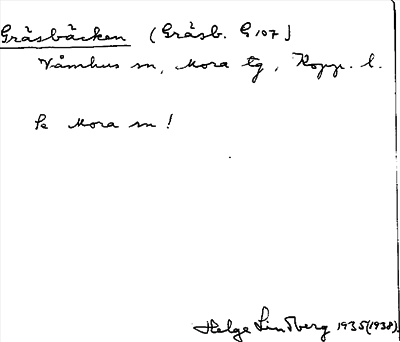 Gräsbäcken (Gräsb. G 107)
Våmhus sn, Mora tg, Kopp. l.
Se Mora sn!
Helge Lindberg 1935(1938).